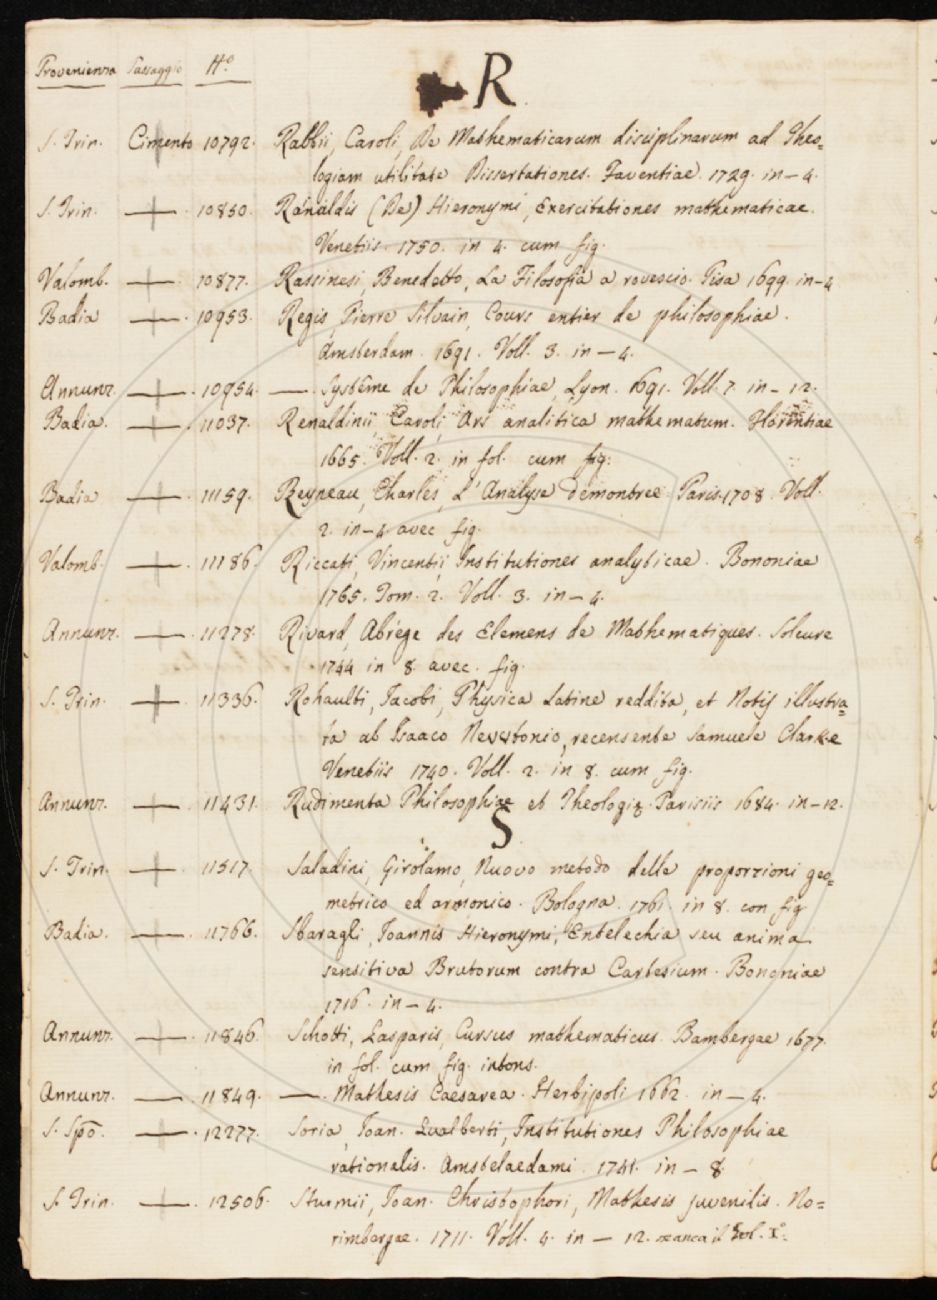 Provenienza Passaggio N.º
R
S. Trin. Cimento 10792. Rabbii, Caroli, De Mathematicarum disciplinarum ad Theo=
logiam utilitate Dissertationes. Faventiae. 1729. in-4.
S. Trin. — 10850. Ranaldis (De) Hieronymi, Exercitationes mathematicae.
Venetiis. 1750. in 4. cum fig.
Valomb. — 10877. Rassinesi, Benedetto, La Filosofia a rovescio. Pisa 1699. in-4
Badia — 10953. Regis, Pierre Silvain, Cours entier de philosophiae.
Amsterdam. 1691. Voll. 3. in-4.
Annunz. — 10954. —. Systême de Philosophiae, Lyon. 1691. Voll. 7. in-12.
Badia. — 11037. Renaldinii Caroli Ars analitica mathematum. Florentiae
1665. Voll. 2. in fol. cum fig.
Badia — 11159. Reyneau, Charles, L'Analyse demontree Paris. 1708. Voll.
2. in-4 avec fig.
Valomb. — 11186. Riccati, Vincentii Institutiones analyticae. Bononiae
1765. Tom. 2. Voll. 3. in-4.
Annunz. — 11278. Rivard, Abrége des Elemens de Mathematiques. Soleure
1744 in 8. avec. fig.
S. Trin. — 11336. Rohaulti, Jacobi, Physica Latine reddita, et Notis illustra=
ta ab Isaaco Newtonio, recensente Samuele Clarke
Venetiis 1740. Voll. 2. in 8. cum fig.
Annunz. — 11431. Rudimenta Philosophiæ et Theologiæ. Parisiis 1684. in-12.
S
S. Trin. — 11517. Saladini, Girolamo, Nuovo metodo delle proporzioni geo=
metrico ed armonico. Bologna. 1761. in 8. con fig
Badia. — 11766. Sbaragli, Joannis Hieronymi, Entelechia seu anima
sensitiva Brutorum contra Cartesium. Bononiae
1716. in-4.
Annunz. — 11846. Schotti, Gasparis, Cursus mathematicus. Bambergae 1677.
in fol. cum fig. intons.
Annunz. — 11849. —. Mathesis Caesarea. Herbipoli 1662. in-4.
S. Spõ. — 12277. Soria, Joan. Gualberti, Institutiones Philosophiae
rationalis. Amstelaedami. 1741. in-8.
S. Trin. — 12506. Sturmii, Joan. Christophori, Mathesis juvenilis. No=
rimbergae. 1711. Voll. 4. in-12. manca il Vol. Iº.